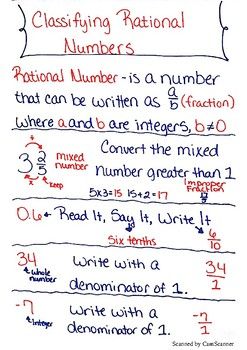 Classifying Rational
Numbers
Rational Number - is a number
that can be written as a/b (fraction)
where a and b are integers, b≠0
3 2/5 mixed number
+
x
keep
Convert the mixed
number greater than 1
5x3=15 15+2=17
Improper
Fraction
17/5
0.6 Read It, Say It, Write It
Six tenths
6/10
34
whole
number
Write with a
denominator of 1.
34/1
-7
integer
Write with a
denominator of 1.
-7/1
Scanned by CamScanner